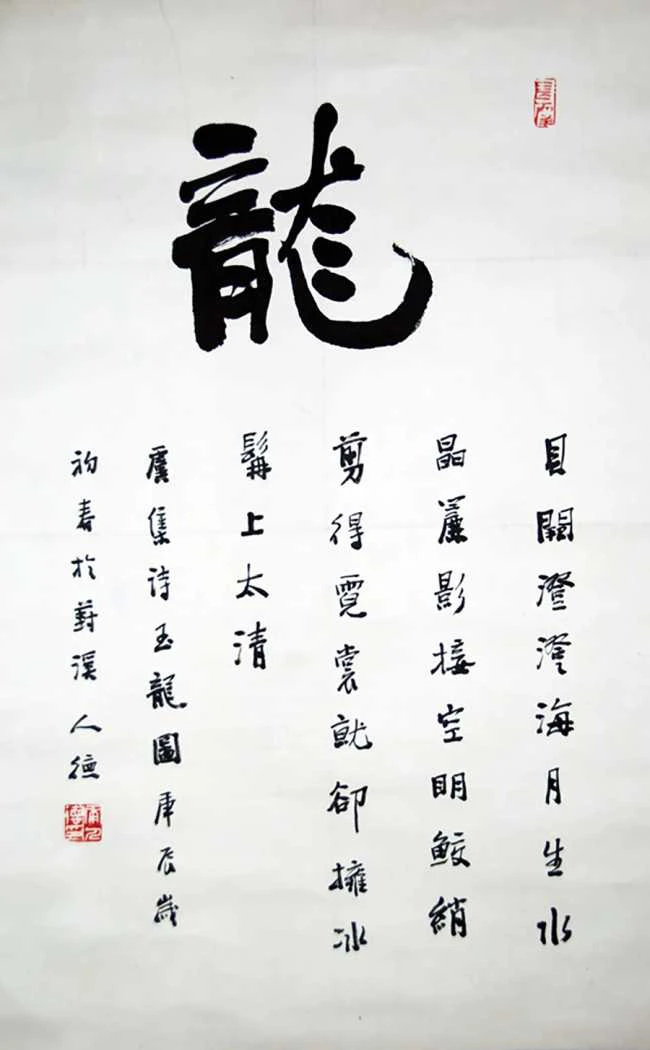 龍
貝闕澄澄海月生水
晶簾影接空明鮫綃
剪得霓裳就卻擁冰
髯上太清
虞集诗玉龍圖庚辰歲
初春於蔚溪人德